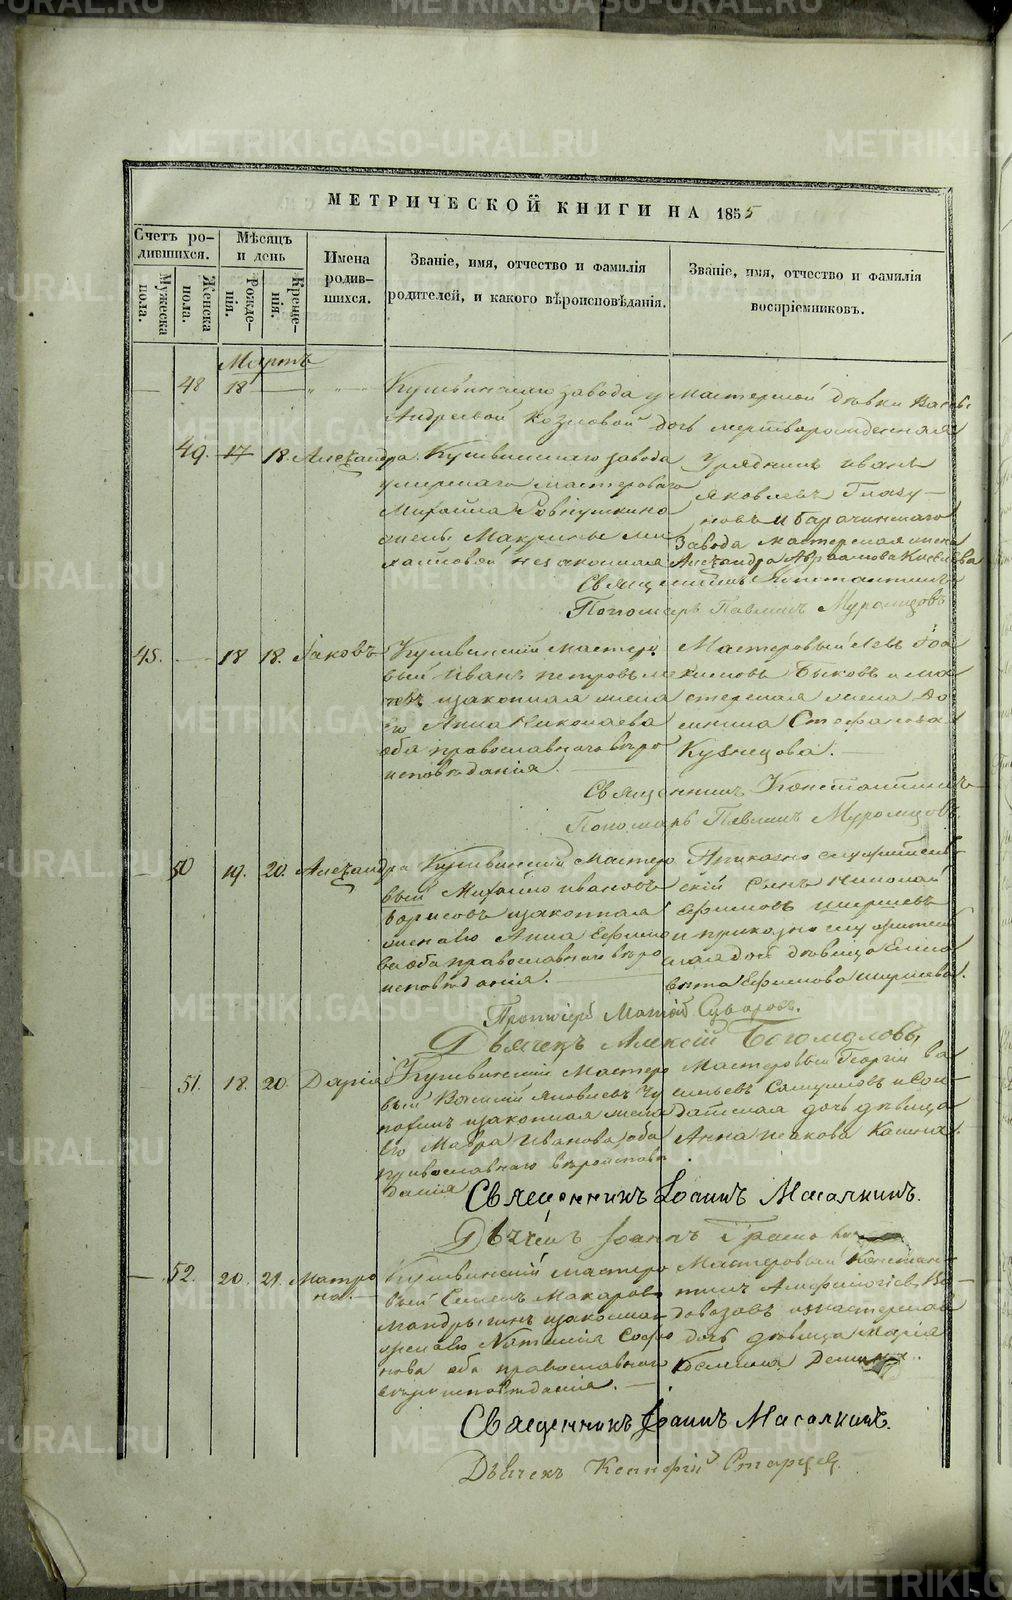 МЕТРИЧЕСКОЙ КНИГИ НА 1855
Счетъ ро-
дившихся.
Мужеска
пола.
Женска
пола.
Мѣсяцъ
и день
Рожде-
нія.
Креще-
нія.
Имена
родив-
шихся.
Званіе, имя, отчество и фамилія
родителей, и какого вѣроисповѣданія.
Званіе, имя, отчество и фамилія
воспріемниковъ.
Мартъ
— 48 18 — „ „ Кушвинскаго завода у мастерской дѣвки
Андреевой Козловой дочь мертворожденная
49. 17 18. Александра. Кушвинскаго завода
умершаго мастероваго
Михайла
жены Макрины Ми
хайловой незаконная
Урядникъ Иванъ
Яковлевъ Глазу-
новъ и Баранчинскаго
завода мастерская жена
Александра Авраамова Киселева
Священникъ Константинъ
Пономарь Павлинъ Муромцовъ
45. — 18 18. Іаковъ Кушвинскій мастеро
вый Иванъ Петровъ
законная жена
его Анна Николаева
оба православнаго вѣро
исповѣданія.
Мастеровый Левъ Іоа
кимовъ Быковъ и ма
стерская жена До
мнина Стефанова
Кузнецова.
Священникъ Константинъ
Пономарь Павлинъ Муромцовъ
— 50 19. 20. Александра Кушвинскій мастеро
вый Михайло Ивановъ
Борисовъ и законная
жена его Анна Ефимо
ва оба православнаго вѣро
исповѣданія.
Приказно служитель
скій сынъ Николай
Ефимовъ Ширшевъ
и приказно служитель
ская дочь дѣвица Елиса
вета Ефимова Ширшева.
Протоіерей Матѳій Суворовъ.
Дьячекъ Алексій Богомоловъ
— 51. 18. 20. Дарія Кушвинскій мастеро
вый Василій Яковлевъ
и законная жена
его Мавра Иванова оба
православнаго вѣроиспове
данія
Мастеровый Георгій Ва
сильевъ Самуиловъ и Сол-
датская дочь дѣвица
Анна Исакова Касина.
Священникъ Іоаннъ Масалкинъ.
Дьячекъ Іоаннъ
— 52. 20. 21. Матро
на. Кушвинскій мастеро
вый Семенъ Макаровъ
Мандрыгинъ и законна
жена его Наталія Софро
нова оба православнаго
вѣроисповѣданія.
Мастеровый Констан-
тинъ Амфилогіевъ Во-
довозовъ и мастерская
дочь дѣвица Марія
Священникъ Іоаннъ Масалкинъ.
Дьячекъ Старцев
METRIKI.GASO-URAL.RU